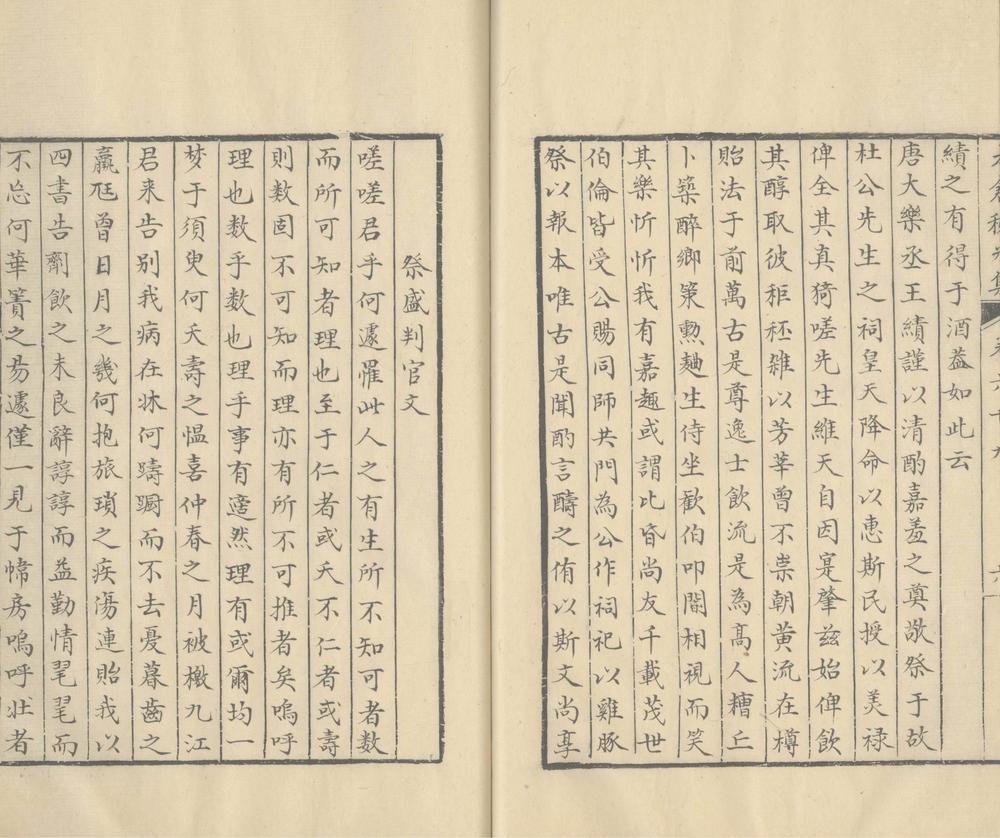 績之有得于酒葢如此云
唐大樂丞王績謹以清酌嘉羞之奠敬祭于故
杜公先生之祠皇天降命以惠斯民授以美祿
俾全其真猗嗟先生維天自因寔肇兹始俾飲
其醇取彼秬秠雑以芳莘曾不崇朝黄流在樽
貽法于前萬古是尊逸士飲流是為髙人糟丘
卜築醉鄉策勲麯生侍坐歡伯叩閽相視而笑
其樂忻忻我有嘉趣或謂比昏尚友千載茂世
伯倫皆受公賜同師共門為公作祠祀以雞豚
祭以報本唯古是聞酌言醻之侑以斯文尚享
祭盛判官文
嗟嗟君乎何遽罹此人之有生所不知可者數
而所可知者理也至于仁者或夭不仁者或壽
則数固不可知而理亦有所不可推者矣嗚呼
理也数乎数也理乎事有適然理有或爾均一
梦于須臾何夭壽之愠喜仲春之月被檄九江
君来告别我病在牀何躊躕而不去憂暮齒之
羸尫曾日月之幾何抱旅瑣之疾傷連貽我以
四書告劑飲之未良辭諄諄而益勤情毣毣而
不忘何華簀之昜遽僅一見于幃房嗚呼壯者